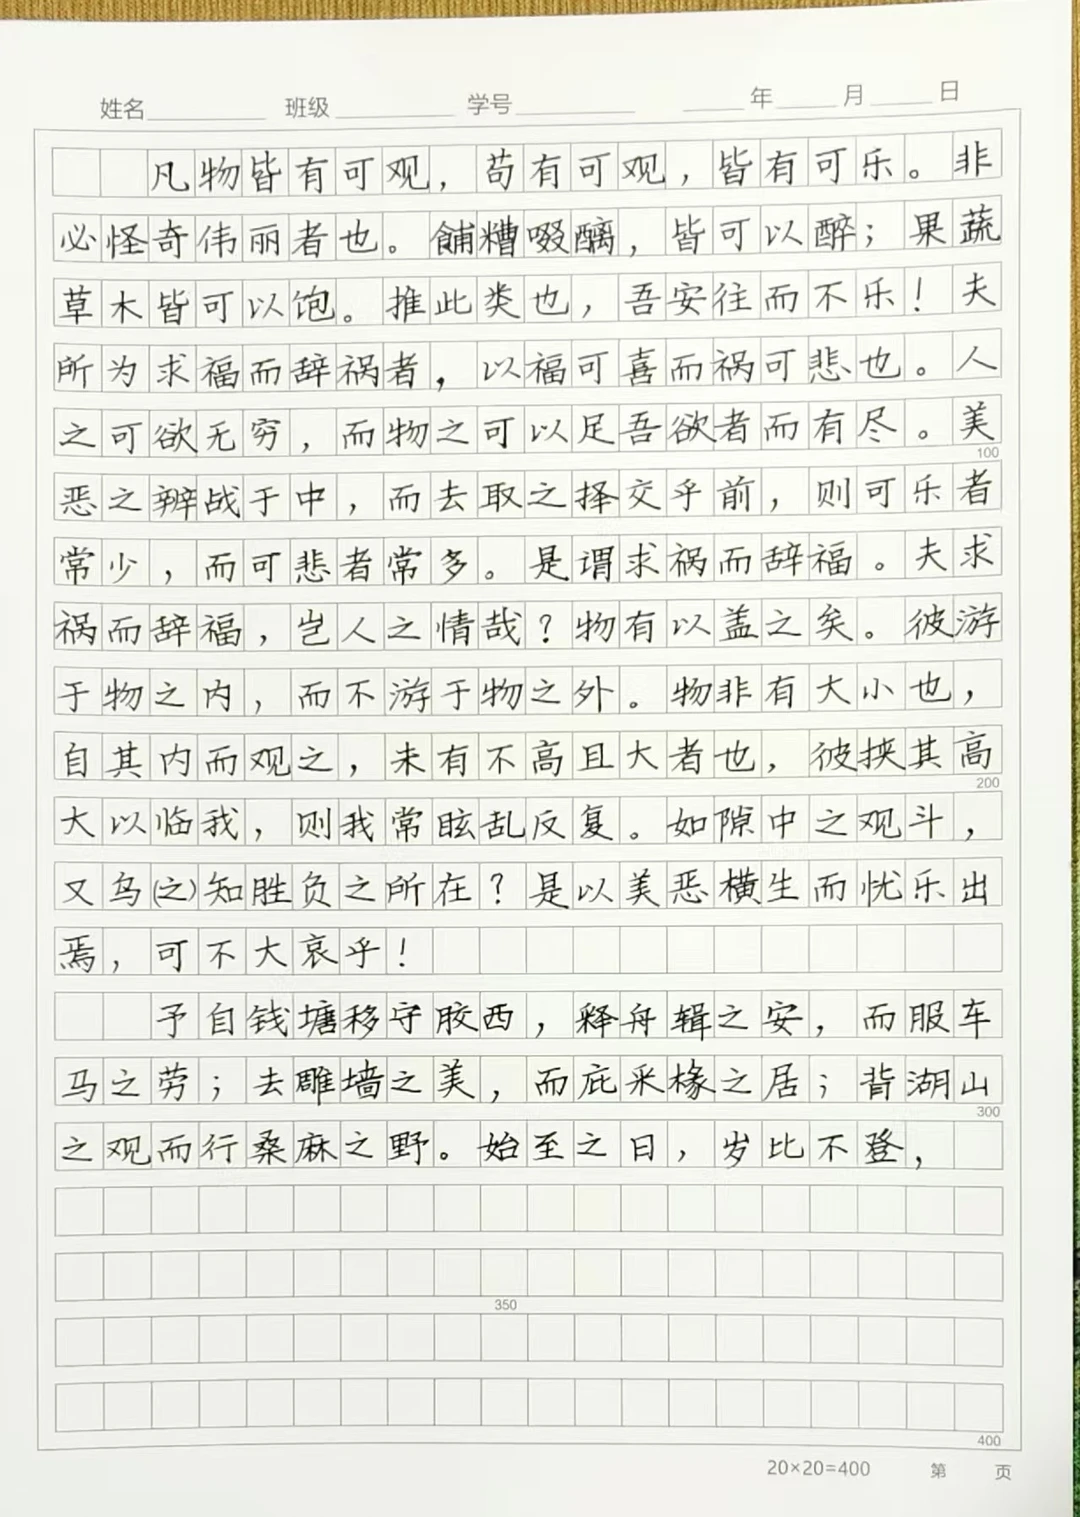 姓名 班级 学号 年 月 日
凡物皆有可观，苟有可观，皆有可乐。非
必怪奇伟丽者也。餔糟啜醨，皆可以醉；果蔬
草木皆可以饱。推此类也，吾安往而不乐！夫
所为求福而辞祸者，以福可喜而祸可悲也。人
之可欲无穷，而物之可以足吾欲者而有尽。美
100
恶之辨战于中，而去取之择交乎前，则可乐者
常少，而可悲者常多。是谓求祸而辞福。夫求
祸而辞福，岂人之情哉？物有以盖之矣。彼游
于物之内，而不游于物之外。物非有大小也，
自其内而观之，未有不高且大者也，彼挟其高
200
大以临我，则我常眩乱反复。如隙中之观斗，
又乌(之)知胜负之所在？是以美恶横生而忧乐出
焉，可不大哀乎！
予自钱塘移守胶西，释舟辑之安，而服车
马之劳；去雕墙之美，而庇采椽之居；背湖山
300
之观而行桑麻之野。始至之日，岁比不登，
350
400
20×20=400 第 页